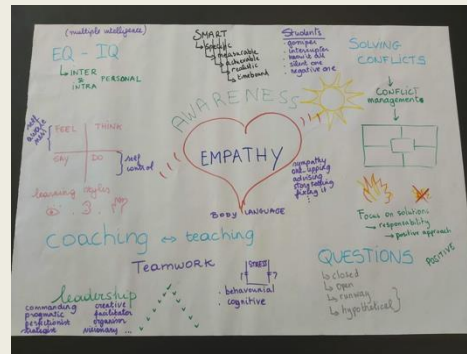 (multiple intelligence)
EQ - IQ
INTER
&
INTRA
PERSONAL
SMART
specific
measurable
achievable
realistic
timebound
Students
gossiper
interrupter
know it all
silent one
negative one
SOLVING
CONFLICTS
CONFLICT
management
AWARENESS
self
FEEL
THINK
SAY
DO
self
control
EMPATHY
sympathy
one-upping
advising
story telling
fixing it
learning styles
BODY LANGUAGE
Focus on solutions
responsibility
positive approach
coaching ↔ teaching
Teamwork
STREET
behavourial
cognitive
QUESTIONS
POSITIVE
closed
open
runway
hypothetical
leadership
commanding
pragmatic
perfectionist
strategist
creative
facilitator
organiser
visionary ...